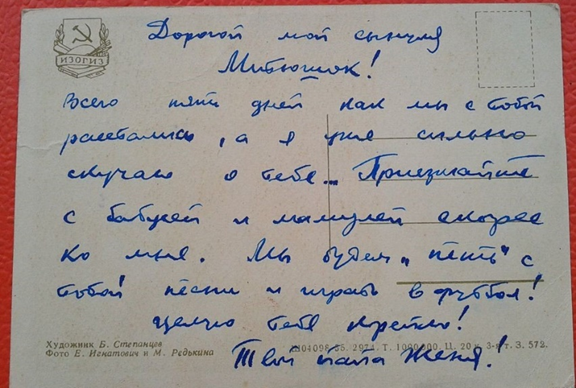 ИЗОГИЗ
Дорогой мой сынуля
Митюшок!
Всего пять дней как мы с тобой
расстались, а я уже сильно
скучаю о тебе... Приезжайте
с бабусей и мамулей скорее
ко мне. Мы будем „петь" с
тобой песни и играть в футбол!
Целую тебя крепко!
Твой папа Женя!
Художник Б. Степанцев
Фото Е. Игнатович и М. Редькина
04098 56. 2974. Т. 1000000. Ц. 20 к. З. 572.